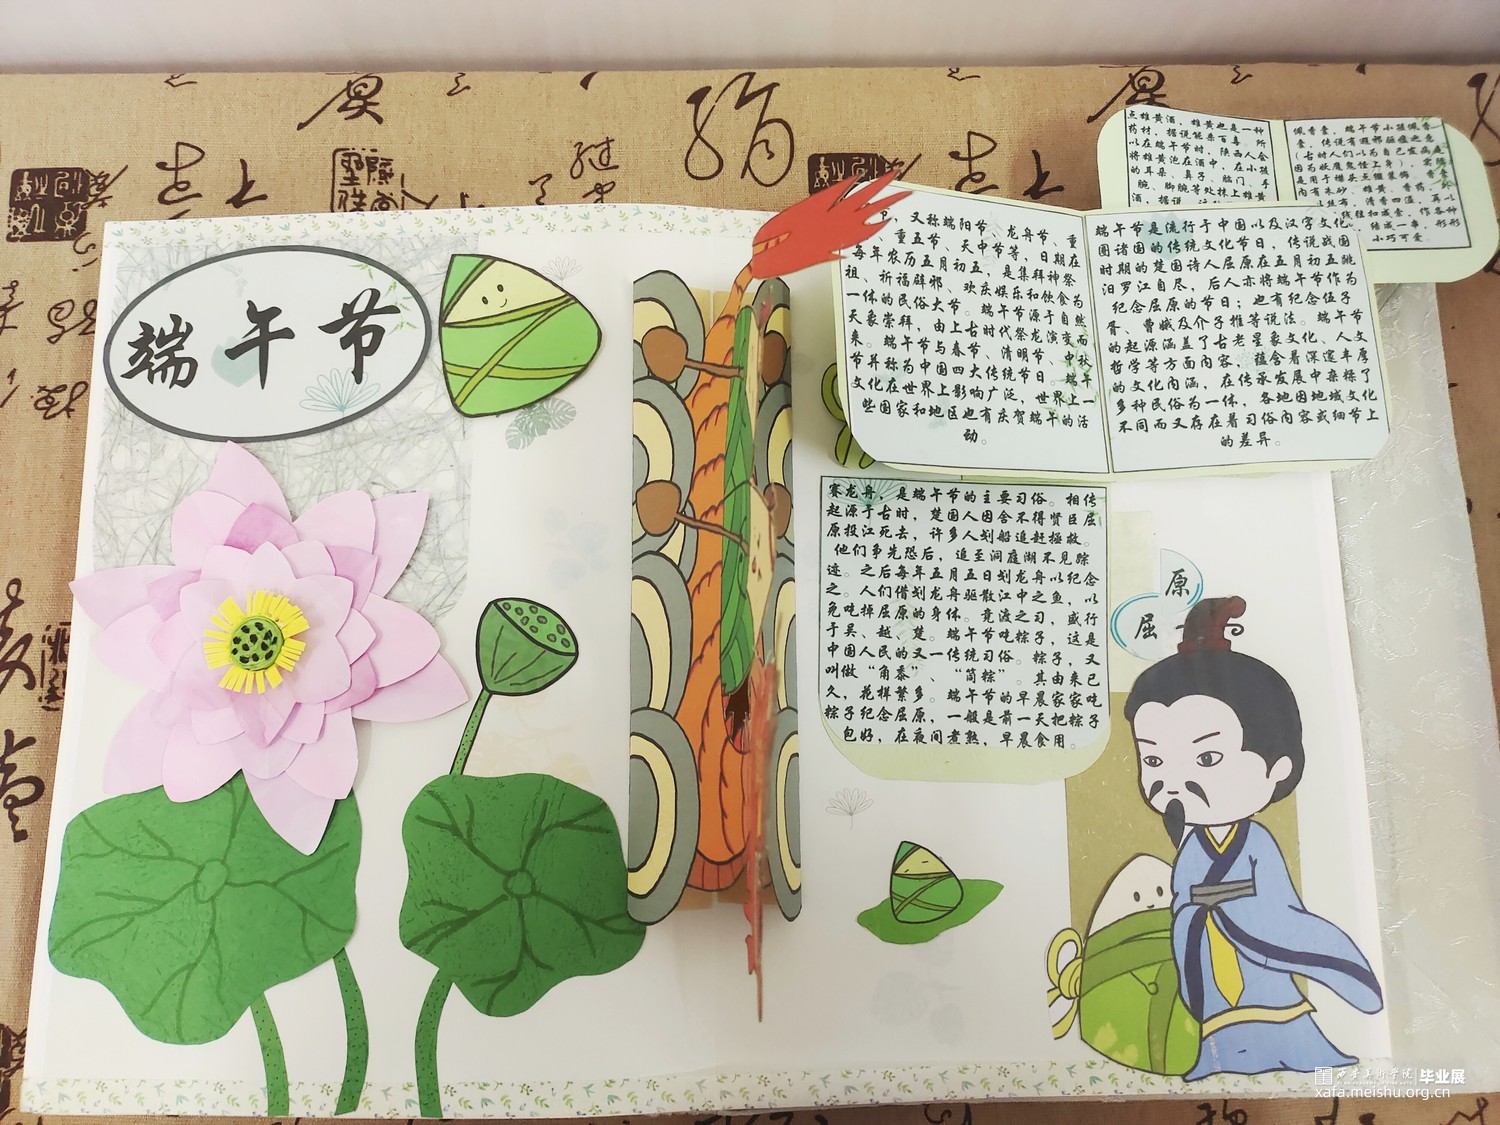 端午节
点雄黄酒,雄黄也是一种
药材,据说能杀百毒。所
以在端午节时,陕西人会
将雄黄泡在酒中,在小孩
的耳朵、鼻子、脑门、手
腕、脚腕等处抹上雄黄
酒,据说
佩香囊,端午节小孩佩香
囊,传说有避邪驱瘟之意
是用于襟头点缀装饰。香囊
内有朱砂、雄黄、香药,
清香四溢,再以
结成一串,形形
小巧可爱。
,又称端阳节、龙舟节、重
重五节、天中节等,日期在
每年农历五月初五,是集拜神祭
祖、祈福辟邪、欢庆娱乐和饮食为
一体的民俗大节。端午节源于自然
天象崇拜,由上古时代祭龙演变而
来。端午节与春节、清明节、中秋
节并称为中国四大传统节日。端午
文化在世界上影响广泛,世界上一
些国家和地区也有庆贺端午的活
动。
端午节是流行于中国以及汉字文化
圈诸国的传统文化节日,传说战国
时期的楚国诗人屈原在五月初五跳
汨罗江自尽,后人亦将端午节作为
纪念屈原的节日;也有纪念伍子
胥、曹娥及介子推等说法。端午节
的起源涵盖了古老星象文化、人文
哲学等方面内容,蕴含着深邃丰厚
的文化内涵,在传承发展中杂糅了
多种民俗为一体,各地因地域文化
不同而又存在着习俗内容或细节上
的差异。
赛龙舟,是端午节的主要习俗。相传
起源于古时,楚国人因舍不得贤臣屈
原投江死去,许多人划船追赶拯救。
他们争先恐后,追至洞庭湖不见踪
迹。之后每年五月五日划龙舟以纪念
之。人们借划龙舟驱散江中之鱼,以
免吃掉屈原的身体。竞渡之习,盛行
于吴、越、楚。端午节吃粽子,这是
中国人民的又一传统习俗。粽子,又
叫做“角黍”、“筒粽”。其由来已
久,花样繁多。端午节的早晨家家吃
粽子纪念屈原,一般是前一天把粽子
包好,在夜间煮熟,早晨食用。
屈原
西安美术学院 毕业展
xafa.meishu.org.cn